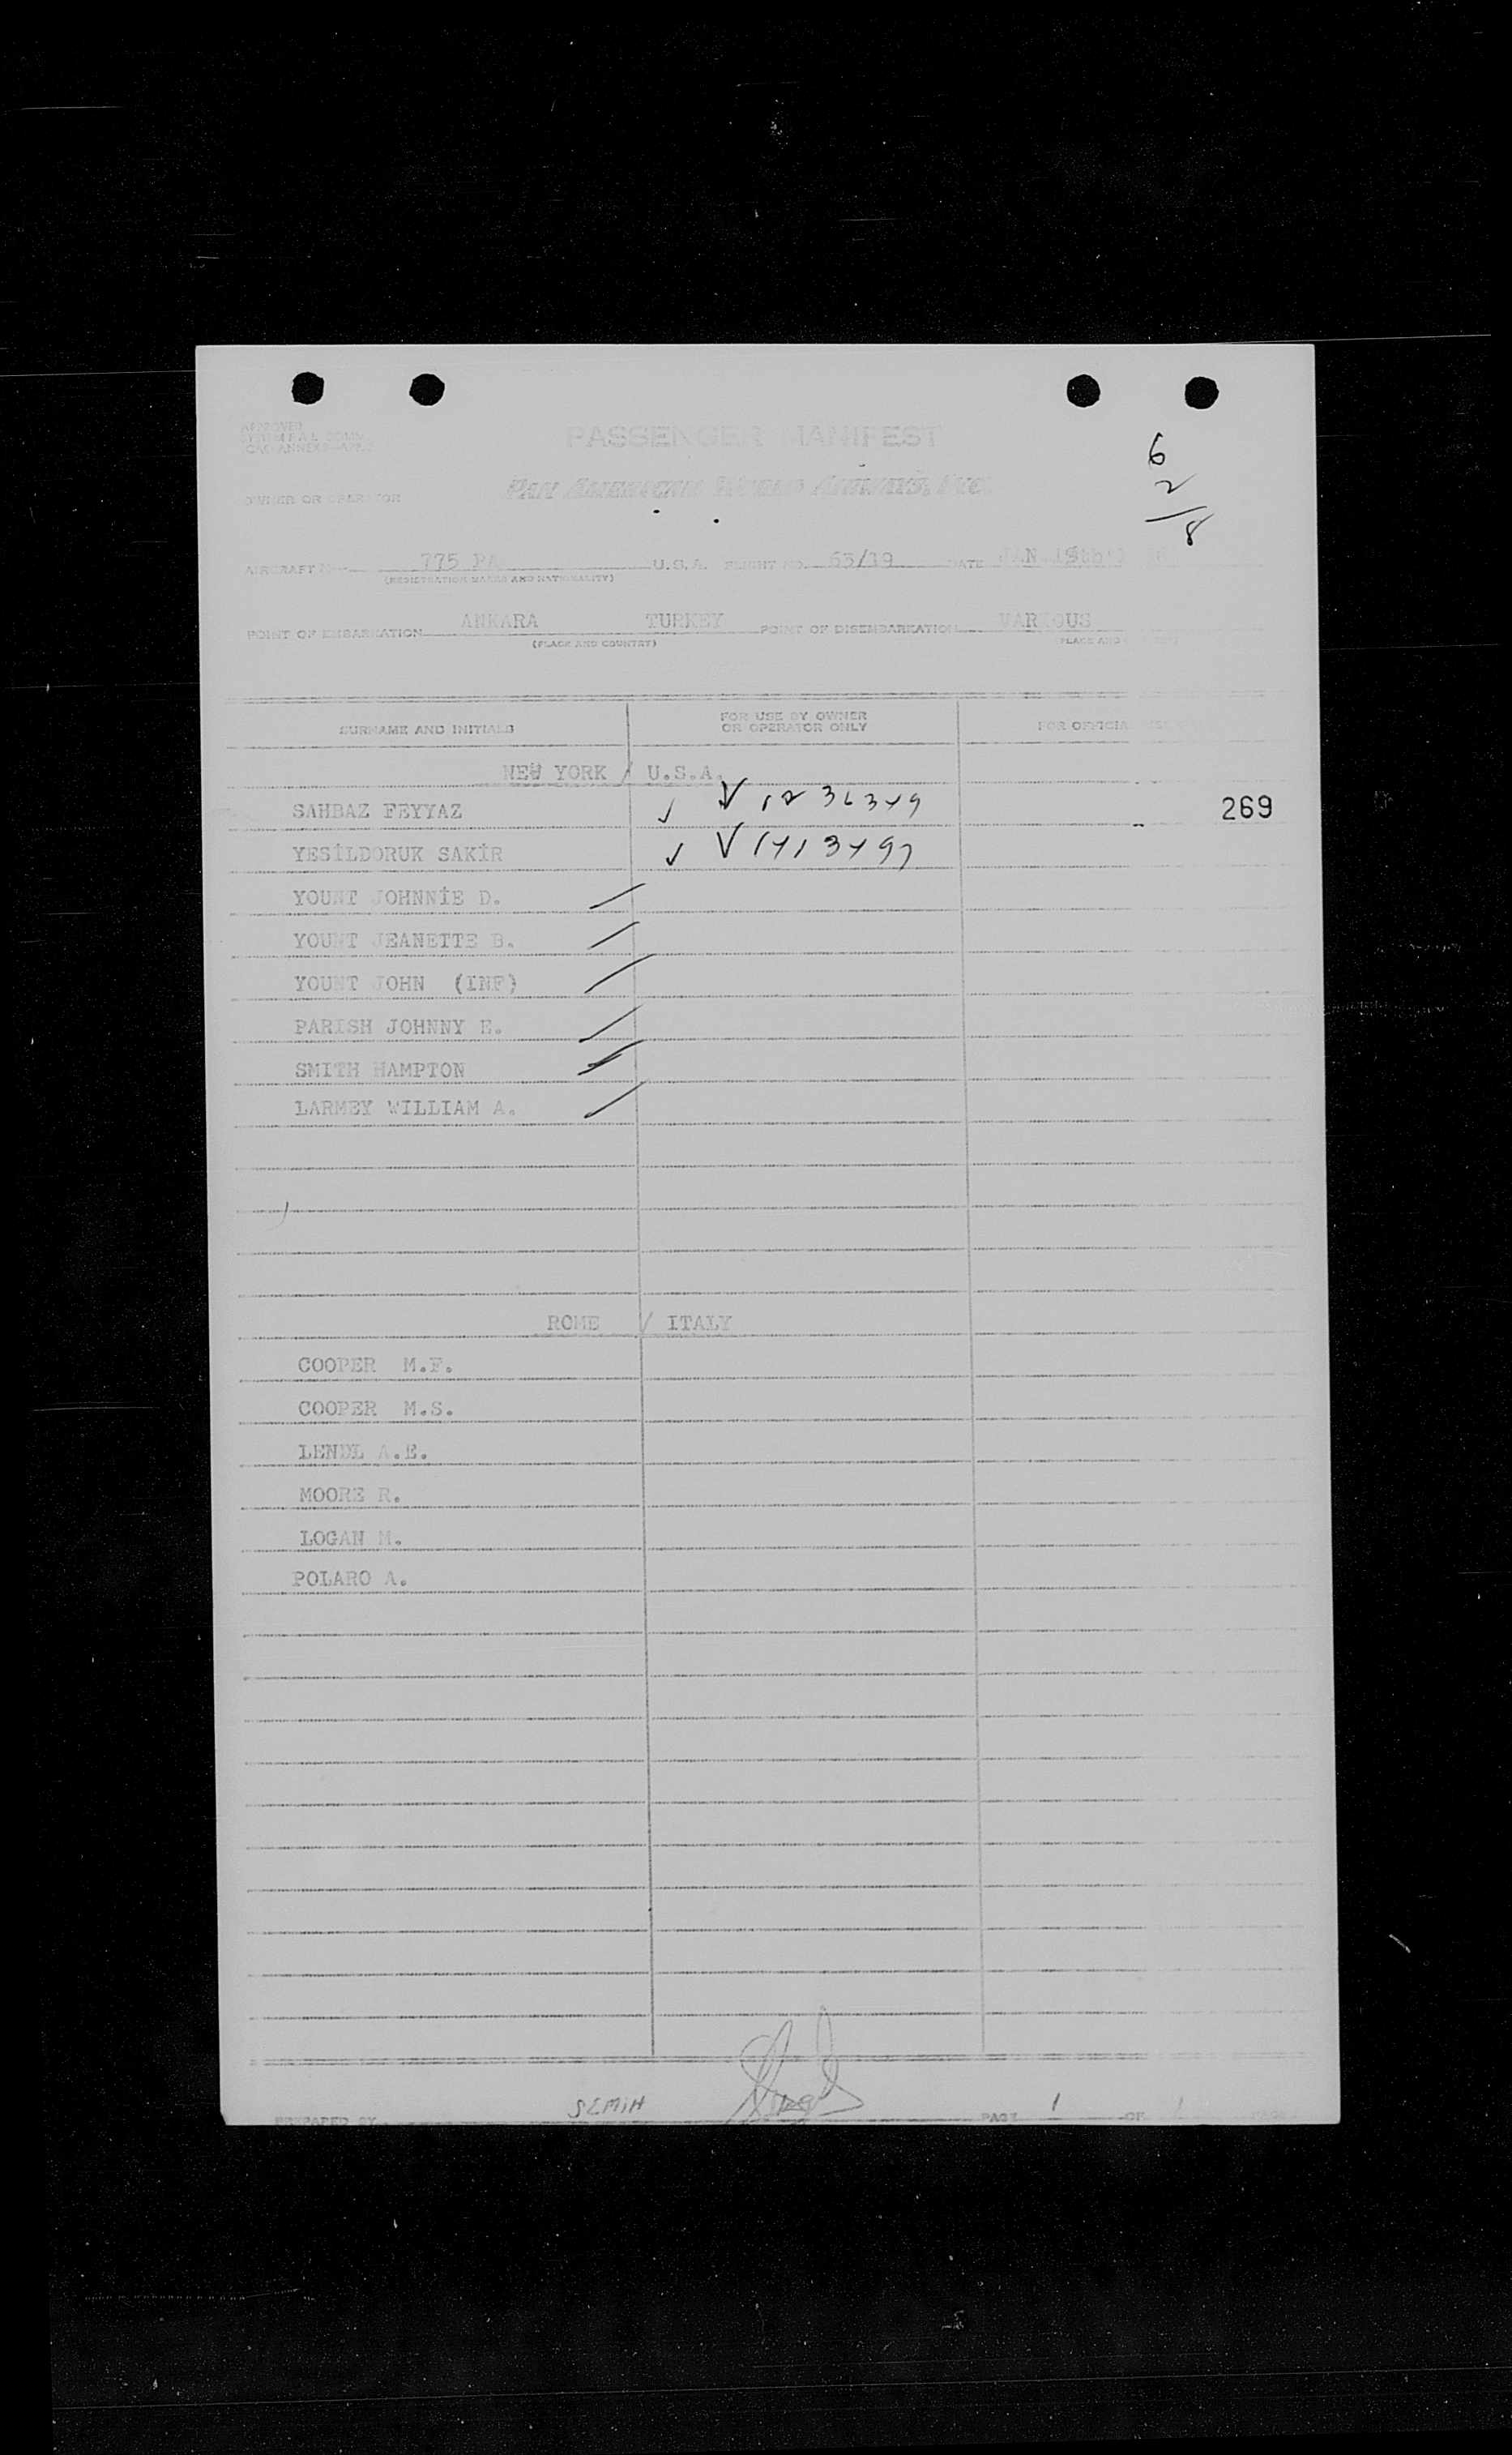 APPROVED
PASSENGER MANIFEST
6
2
8
OWNER OR OPERATOR PAN AMERICAN WORLD AIRWAYS, INC.
AIRCRAFT 775 PA U.S.A. FLIGHT NO. 63/19 DATE JAN.
(REGISTRATION MARKS AND NATIONALITY)
POINT OF EMBARKATION ANKARA TURKEY POINT OF DISEMBARKATION VARIOUS
(PLACE AND COUNTRY) (PLACE AND
SURNAME AND INITIALS FOR USE BY OWNER OR OPERATOR ONLY FOR OFFICIAL
NEW YORK / U.S.A.
SAHBAZ FEYYAZ ✓ V 1236349 269
YESİLDORUK SAKİR ✓ V 1413497
YOUNT JOHNNİE D.
YOUNT JEANETTE B.
YOUNT JOHN (INF)
PARISH JOHNNY E.
SMITH HAMPTON
LARMEY WILLIAM A.
ROME / ITALY
COOPER M.F.
COOPER M.S.
LENDL A.E.
MOORE R.
LOGAN M.
POLARO A.
PREPARED BY SEMİH PAGE 1 OF 1